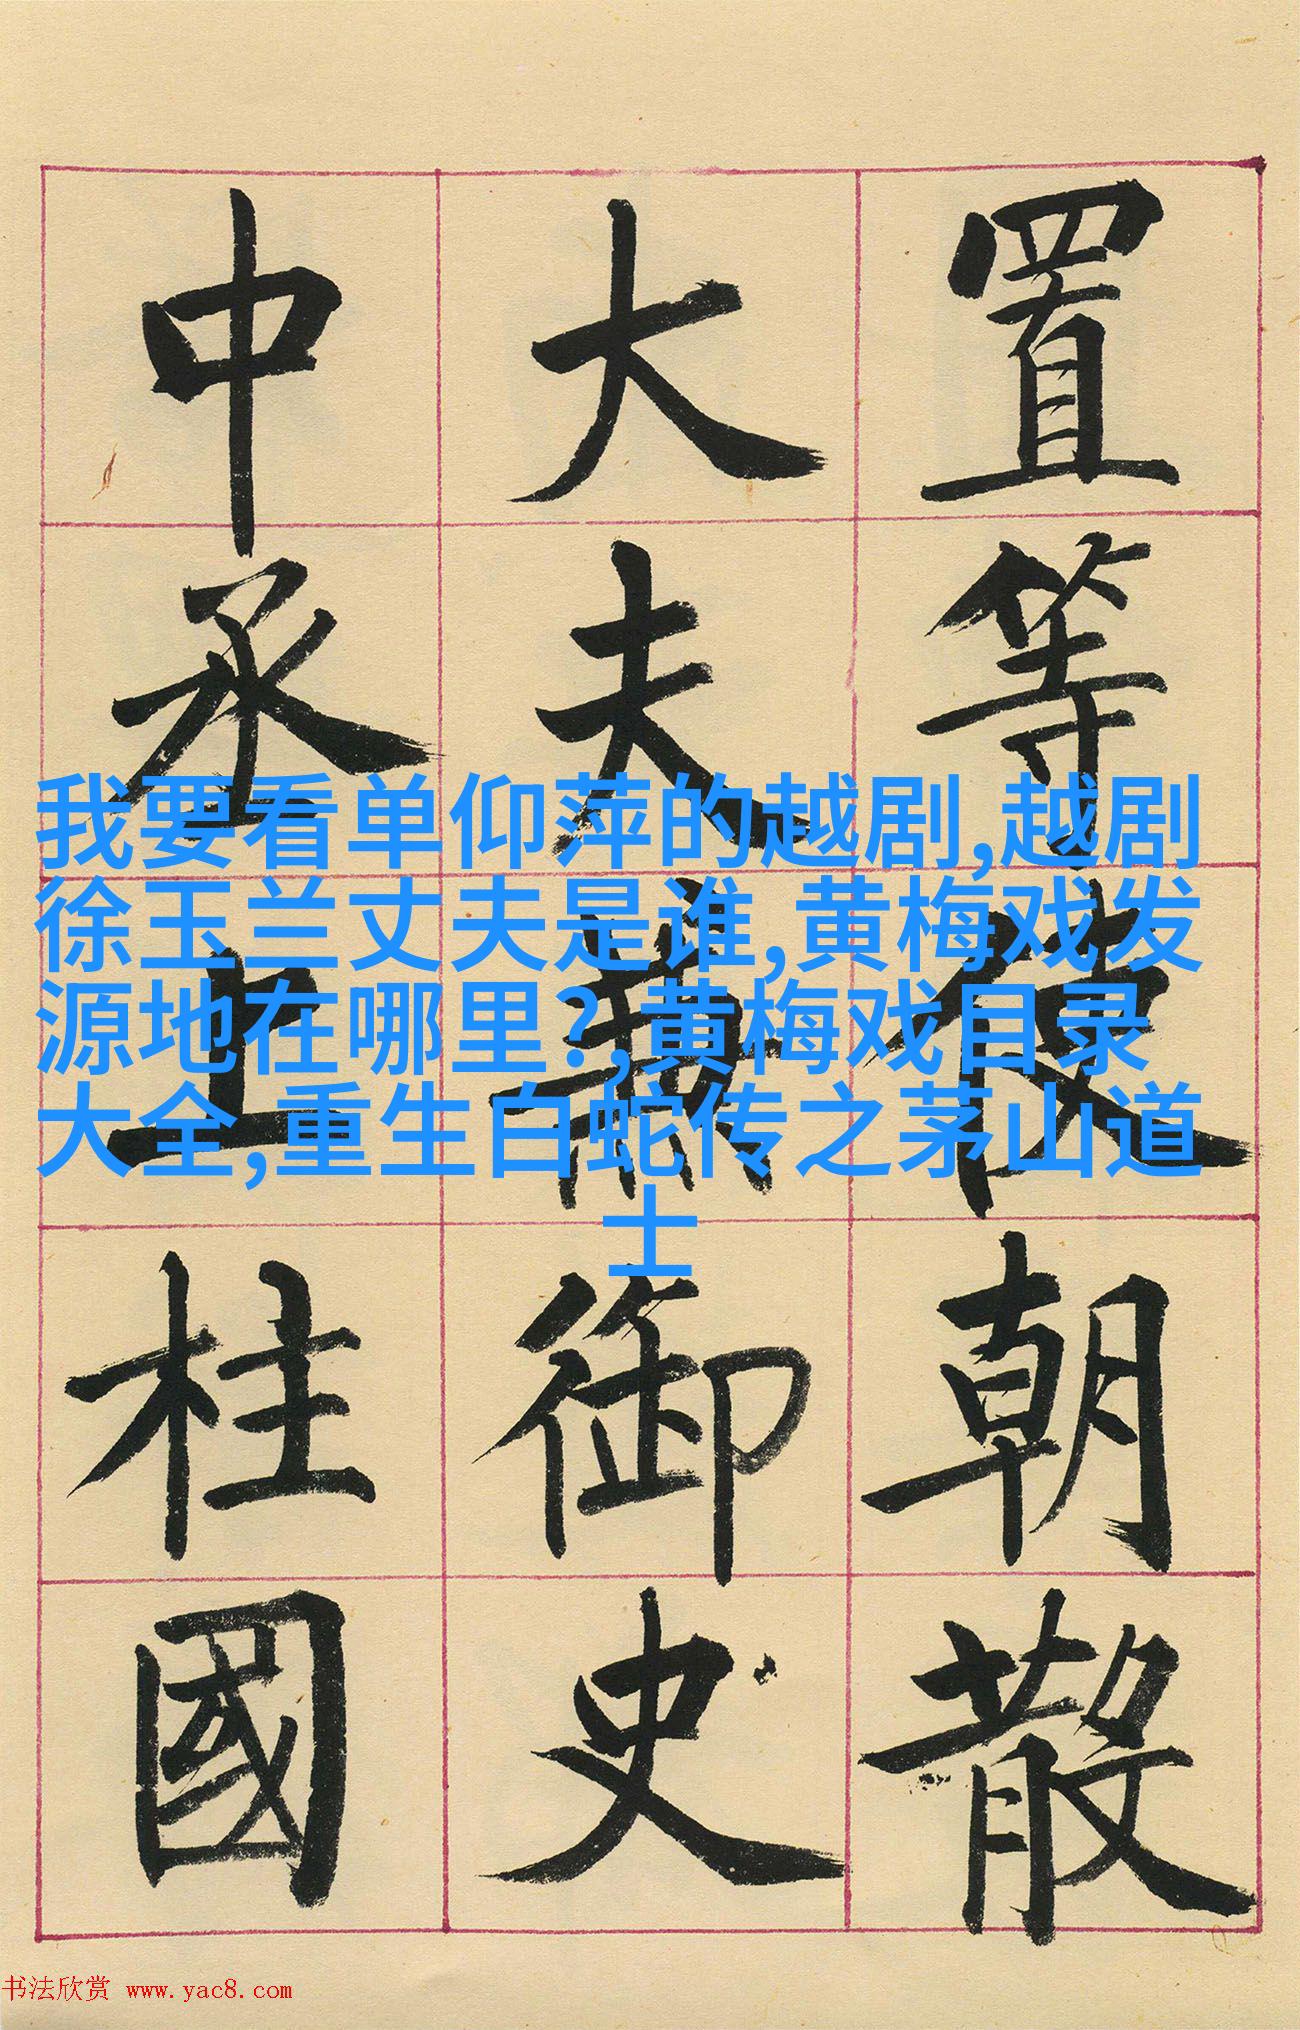 置等使朝散
大夫兼御史
中丞上柱國
我要看单仰萍的越剧,越剧
徐玉兰丈夫是谁,黄梅戏发
源地在哪里?,黄梅戏目录
大全,重生白蛇传之茅山道
士
书法欣赏 www.yac8.com